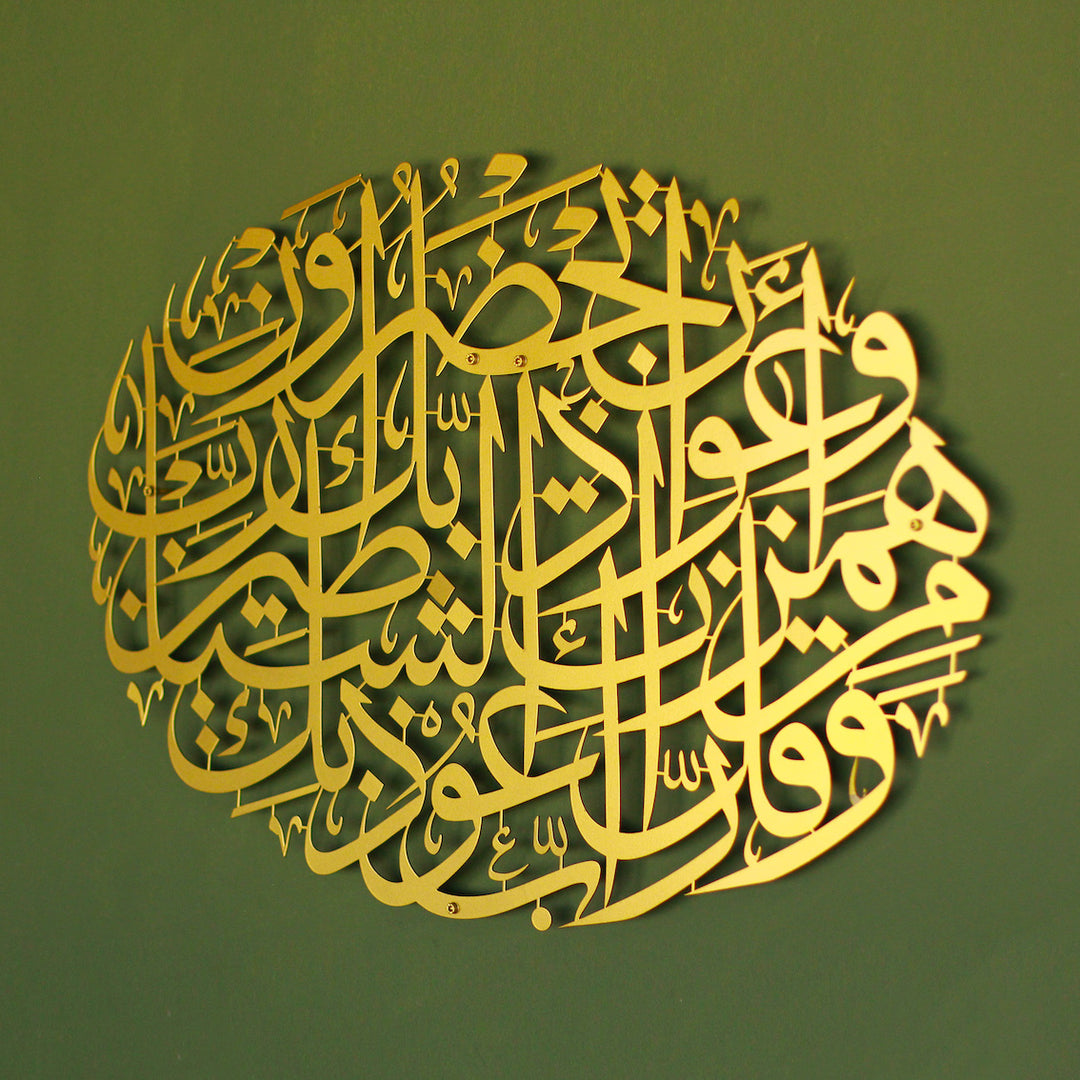 وَقُلْ رَبِّ أَعُوذُ بِكَ
مِنْ هَمَزَاتِ الشَّيَاطِينِ
وَأَعُوذُ بِكَ رَبِّ
أَنْ يَحْضُرُونِ